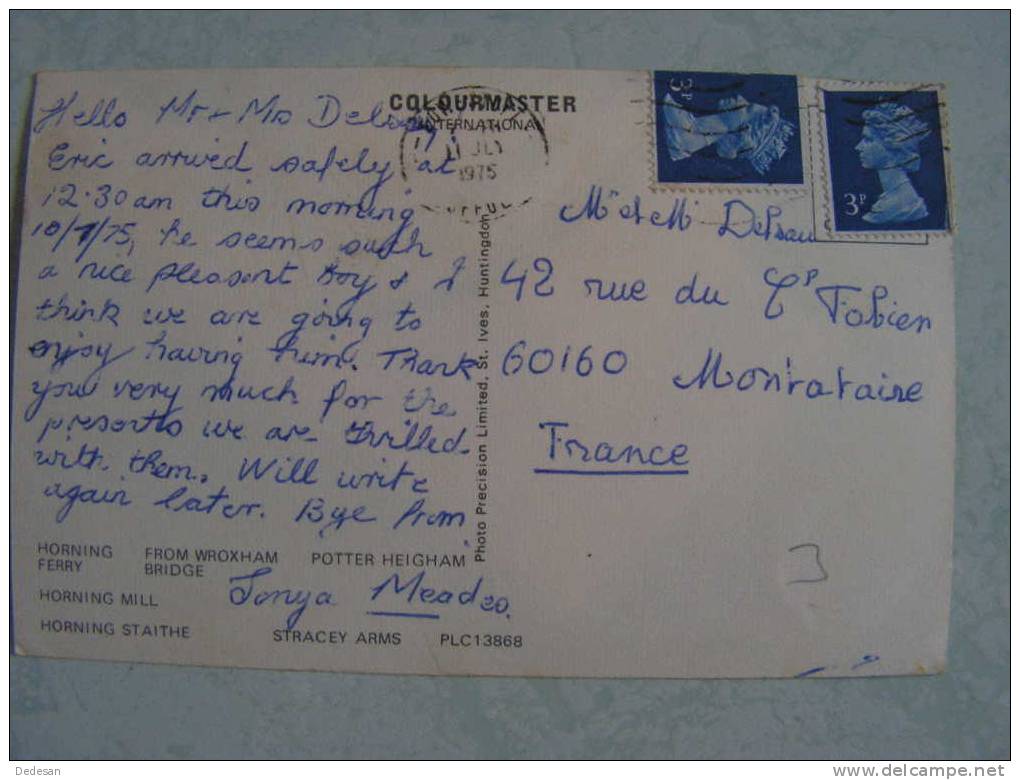 COLOURMASTER
INTERNATIONAL
Hello Mr + Mrs
Eric arrived safely at
12.30 am this morning
10/7/75, he seems such
a nice pleasent boy & I
think we are going to
enjoy having him. Thank
you very much for the
presents we are thrilled
with them. Will write
again later. Bye from
Tonya
HORNING FERRY
FROM WROXHAM BRIDGE
POTTER HEIGHAM
HORNING MILL
HORNING STAITHE
STRACEY ARMS PLC13868
Photo Precision Limited, St. Ives, Huntingdon
1975
3P
3P
M et M
42 rue du Cᵗ Fabien
60160 Montataire
France
3
Dedesan
http://www.delcampe.net